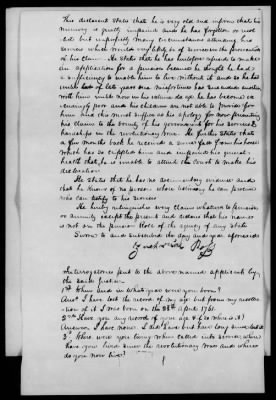 This declarant states that he is very old and infirm that his
memory is greatly impaired and he has forgotten or nearly
lost but imperfectly many circumstances attending his
service which would very likely be of service in the prosecution
of his claim. He states that he has heretofore refused to make
an application for a pension because he thought he had a
sufficiency to enable him to live without it and so he has
until of late years when misfortunes and sickness
with him until now in his old age he has become
poor and his children are not able to provide for
him and this must suffice as his apology for now presenting
his claim to the bounty of his government for his services &
hardships in the revolutionary War. He further states that
a few months back he received a fall from his horse
which has so crippled him and impaired his general
health that he is unable to attend the Court to make his
declaration
He states that he has no documentary evidence and
that he knows of no person whose testimony he can procure
who can testify to his service
He hereby relinquishes every claim whatever to pension
or annuity except the present and declares that his name is
not on the pension Roll of the agency of any state
Sworn to and subscribed the day and year aforesaid
Interrogatories put to the above named applicant by
the said Justice
1st When and in what year were you born?
Ans I have lost the record of my age but from my recollec
tion of it I was born on the 28th April 1761
2nd Have you any record of your age & if so where is it?
Answer. I have none. I did have but have long since lost it
3d Where were you living when called into service, where
have you lived since the revolutionary War and where
do you now live?